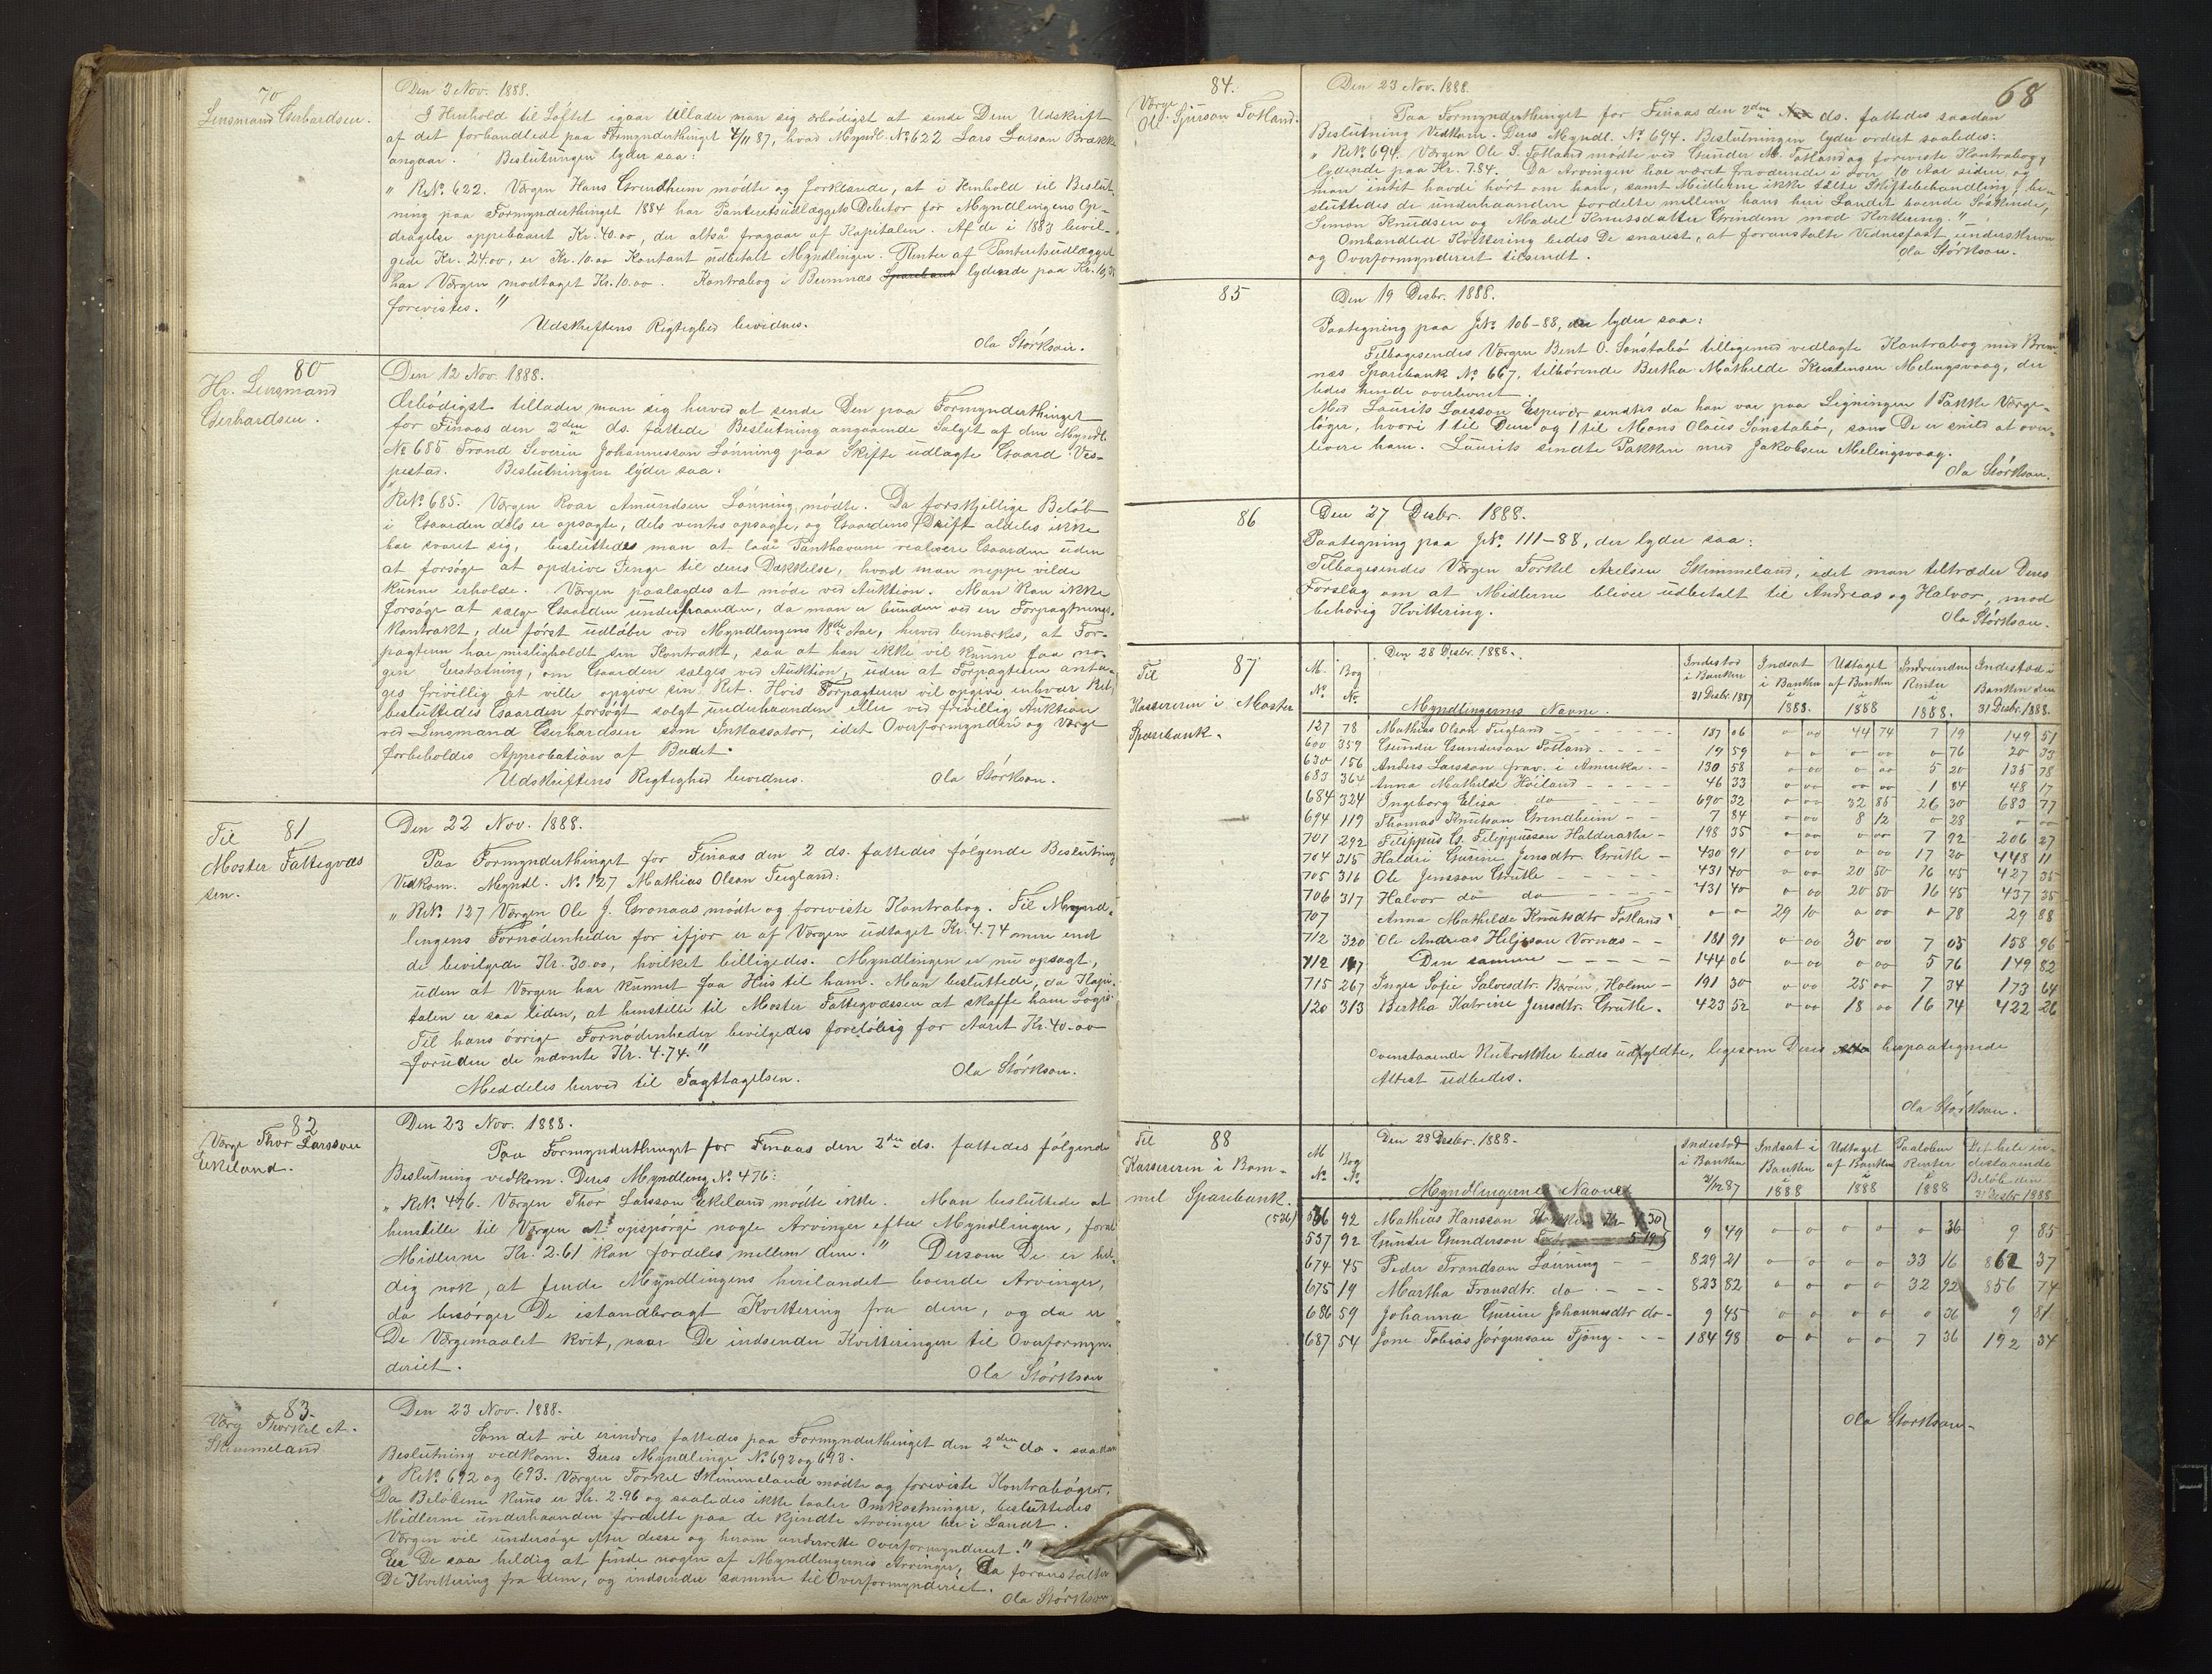 70
Lensmand Gerhardsen.
Den 3 Nov. 1888.
I Henhold til Løftet igaar tillader man sig ærbødigst at sende Dem Udskrift
af det forhandlede paa Formynderthinget 4/11 87, hvad Myndl. No 622 Lars Larson Brække
angaar. Beslutningen lyder saa:
" RNo. 622. Værgen Hans Grindheim mødte og forklarede, at i Henhold til Beslut-
ning paa Formynderthinget 1884 har Panteretsudlæggets Debitor for Myndlingens Op-
dragelse oppebaaret Kr. 40.00, der altsaa fragaar af Kapitalen. Af de i 1883 bevil-
gede Kr. 24.00, er Kr. 10.00 Kontant udbetalt Myndlingen. Renter af Panteretsudlægget
har Værgen modtaget Kr. 10.00. Kontrabog i Bremnæs Sparebank lydende paa Kr. 10,
forevistes."
Udskriftens Rigtighed bevidnes.
Ola Størkson.
80
Hr. Lensmand
Gerhardsen.
Den 12 Nov. 1888.
Ærbødigst tillader man sig herved at sende Den paa Formynderthinget
for Finaas den 2den ds. fattede Beslutning angaaende Salget af den Myndl.
No 685 Trond Severin Johannesson Lønning paa Skifte udlagte Gaard Ves-
pestad. Beslutningen lyder saa:
"RNo. 685. Værgen Roar Amundsen Lønning mødte. Da forskjellige Beløb
i Gaarden dels er opsagte, dels ventes opsagte, og Gaardens Drift aldeles ikke
har svaret sig, besluttedes man at lade Panthaverne realisere Gaarden uden
at forsøge at opdrive Penge til deres Dækkelse, hvad man neppe vilde
kunne erholde. Værgen paalagdes at møde ved Auktion. Man kan ikke
forsøge at sælge Gaarden underhaanden, da man er bunden ved en Forpagtnings-
kontrakt, der først udløber ved Myndlingens 18de Aar, herved bemærkes, at For-
pagteren har misligholdt sin Kontrakt, saa at han ikke vil kunne faa no-
gen Erstatning, om Gaarden sælges ved Auktion, uden at Forpagteren anta-
ges frivillig at ville opgive sin Ret. Hvis Forpagteren vil opgive enhver Ret,
besluttedes Gaarden forsøgt solgt underhaanden eller ved frivillig Auktion
ved Lensmand Gerhardsen som Inkassator, idet Overformynderi og Værge
forbeholdes Approbation af Budet.
Udskriftens Rigtighed bevidnes. Ola Størkson.
81
Til
Moster Fattigvæs
sen.
Den 22 Nov. 1888.
Paa Formynderthinget for Finaas den 2 ds. fattedes følgende Beslutning
Vedkom. Myndl. No. 127 Mathias Olson Teigland:
" RNo. 127 Værgen Ole J. Gronaas mødte og foreviste Kontrabog. Til Mynd-
lingens Fornødenheder for ifjor er af Værgen udtaget Kr. 4.74 mere end
de bevilgede Kr. 30.00, hvilket billigedes. Myndlingen er nu opsagt,
uden at Værgen har kunnet faa Hus til ham. Man besluttede, da Kapi-
talen er saa liden, at henstille til Moster Fattigvæssen at skaffe ham Logis.
Til hans øvrige Fornødenheder bevilgedes foreløbig for Aaret Kr. 40.00
foruden de nævnte Kr. 4.74."
Meddeles herved til Iagttagelsen. Ola Størkson.
82
Værge Thor Larsson
Eikeland.
Den 23 Nov. 1888.
Paa Formynderthinget for Finaas den 2den ds. fattedes følgende
Beslutning vedkom. Deres Myndling No 476:
" RNo. 476. Værgen Thor Larsson Ekeland mødte ikke. Man besluttede at
henstille til Værgen at opspørge nogle Arvinger efter Myndlingen, forat
Midlerne Kr. 2.61 kan fordeles mellem dem." Dersom De er hel-
dig nok, at finde Myndlingens herilandet boende Arvinger,
da besørger De istandbragt Kvittering fra dem, og da er
De Værgemaalet kvit, naar De indsender Kvitteringen til Overformyn-
deriet. Ola Størkson
83.
Værg Thorkel A.
Skimmeland
Den 23 Nov. 1888.
Som det vil erindres, fattedes paa Formynderthinget den 2den ds. saadan
Beslutning vedkom. Deres Myndlinge No 692 og 693.
" RNo. 692 og 693. Værgen Torkel Skimmeland mødte og foreviste Kontrabøger.
Da Beløbene kuns er Kr. 2.96 og saaledes ikke taaler Omkostninger, besluttedes
Midlerne underhaanden fordelte paa de kjendte Arvinger her i Landt.
Værgen vil undersøge efter disse og herom underrette Overformynderiet."
Er De saa heldig at finde nogen af Myndlingernes Arvinger, da foranstalter
De Kvittering fra dem, og indsender samme til Overformynderiet.
Ola Størkson
68
84.
Værge
Ole Gjerson Totland.
Den 23 Nov. 1888.
Paa Formynderthinget for Finaas den 2den ds. fattedes saadan
Beslutning Vedkom. Deres Myndl. No. 694. Beslutningen lyder ordret saaledes:
" RNo. 694. Værgen Ole S. Totland mødte ved Gunder M. Totland og foreviste Kontrabog,
lydende paa Kr. 7.84. Da Arvingen har været fraværende i over 10 Aar siden og
man intet havde hørt om ham, samt Midlerne ikke taalte Skiftebehandling, be-
sluttedes de underhaanden fordelte mellem hans her i Landet boende Søskende,
Simon Knudsen og Madel Knutsdatter Grindem mod Kvittering."
Omhandled Kvittering bedes De snarest, at foranstalte Vidnesfast underskreven
og Overformynderiet tilsendt. Ola Størkson.
85
Den 19 Desbr. 1888.
Paategning paa JNo. 106-88, der lyder saa:
Tilbagesendes Værgen Bent O. Sønstabø tilligemed vedlagte Kontrabog med Brem-
næs Sparebank No. 667, tilhørende Bertha Mathilde Kristensen Melingsvaag, der
bedes hende overleveret.
Med Laurits Larsson Espevær sendtes da han var paa Ligningen 1 Pakke Værge-
bøger, hvori 1 til Dem og 1 til Mons Olaus Sønstabø, som De er snild at over-
levere ham. Laurits sendte Pakken med Jakobsen Melingsvaag.
Ola Størkson.
86
Den 27 Desbr. 1888.
Paategning paa JNo. 111-88, der lyder saa:
Tilbagesendes Værgen Torkel Axelsen Skimmeland, idet man tiltræder Deres
Forslag om at Midlerne bliver udbetalt til Andreas og Halvor, mod
behørig Kvittering.
Ola Størkson.
Til 87
Kassereren i Moster
Sparebank.
Den 28 Desbr. 1888.
M. No. Bog No. Myndlingernes Navne. Indestod i Banken 31 Desbr. 1887 Indsat i Banken i 1888. Udtaget af Banken i 1888 Indvundne Renter i 1888. Indestod i Banken den 31 Desbr. 1888.
127 78 Mathias Olson Teigland 187 06 0 00 44 74 7 19 149 51
600 359 Gunder Gunderson Totland 19 59 0 0 0 00 0 76 20 35
630 156 Anders Larsson frav. i Amerika 130 58 0 00 0 00 5 20 135 78
683 364 Anna Mathilde Høiland 46 33 0 00 00 00 1 84 48 17
684 324 Ingeborg Elisa do 690 32 0 00 32 85 26 30 683 77
694 119 Thomas Knutson Grindheim 7 84 0 00 8 12 0 28 0 00
701 292 Filippus G. Filippusson Halderaker 198 35 0 00 0 00 7 92 206 27
704 315 Haldri Gurine Jensdtr. Grutle 430 91 0 00 0 00 17 20 448 11
705 316 Ole Jensson Grutle 431 40 0 00 20 50 16 45 427 35
706 317 Halvor do do 431 40 0 00 20 50 16 45 437 35
707 Anna Mathilde Knutsdtr Totland 0 0 29 10 0 00 0 78 29 88
712 320 Ole Andreas Heljeson Vornæs 181 91 0 00 30 00 7 05 158 96
712 167 Den samme 144 06 0 00 0 00 5 76 149 82
715 267 Inger Sofie Salvesdtr. Børøen, Holme 191 30 0 00 25 00 7 34 173 64
120 313 Bertha Katrine Jensdtr. Grutle. 423 52 0 00 18 00 16 74 422 26
Ovenstaaende Rubrikker bedes udfyldte, ligesom Deres hespaategnede
Attest udbedes.
Ola Størkson.
Til 88
Kassereren i Bom-
mel Sparebank.
(526)
Den 28 Desbr. 1888.
M No. Bog No. Myndlingernes Navne Indestod i Banken 31/12 87 Indsat i Banken i 1888 Udtaget af Banken i 1888 Paaløbne Renter i 1888 Det hele in-destaaende Beløb den 31 Desbr 1888
536 92 Mathias Hansson
537 92 Gunder Gunderson 9 49 0 0 0 0 0 36 9 85
674 45 Peder Trondson Lønning 829 21 0 0 0 0 33 16 862 37
675 19 Martha Tronsdtr. do 823 82 0 0 0 0 32 92 856 74
686 59 Johanna Gurine Johannesdtr do 9 45 0 0 0 0 0 36 9 81
687 54 Jone Tobias Jørgenson Tjong 184 98 0 0 0 0 7 36 192 34
Ola Størkson